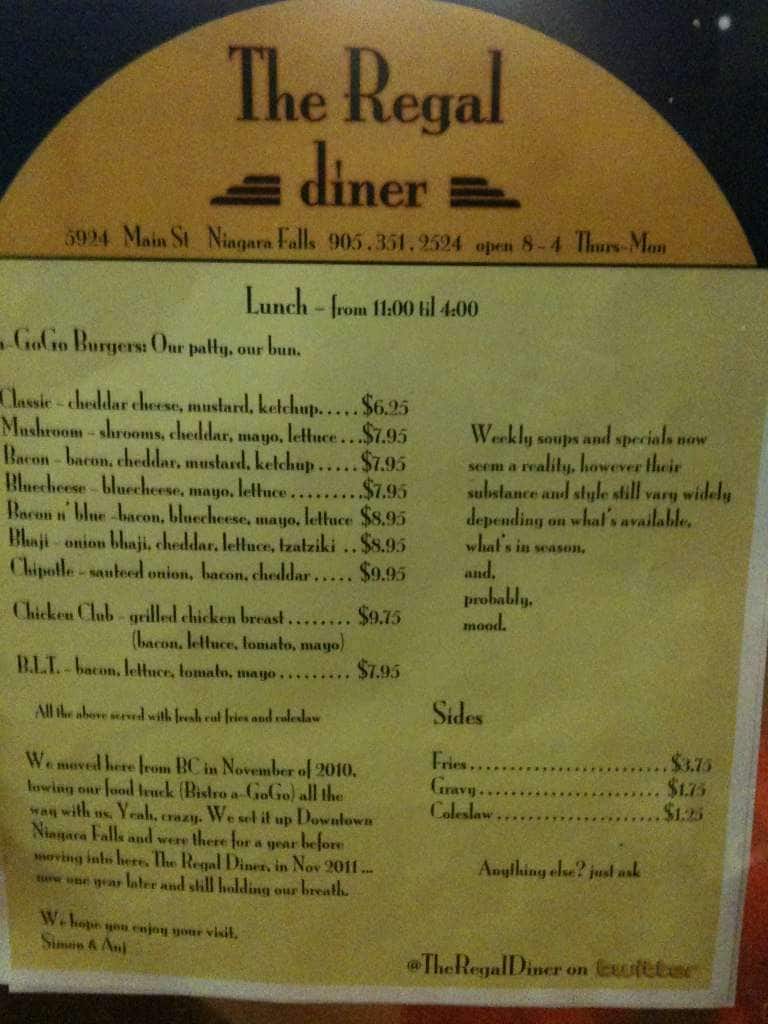 The Regal
diner
5924 Main St Niagara Falls 905.351.2524 open 8-4 Thurs-Mon
Lunch - from 11:00 til 4:00
a-GoGo Burgers: Our patty, our bun.
Classic - cheddar cheese, mustard, ketchup.....$6.25
Mushroom - shrooms, cheddar, mayo, lettuce...$7.95
Bacon - bacon, cheddar, mustard, ketchup.....$7.95
Bluecheese - bluecheese, mayo, lettuce.........$7.95
Bacon n' blue -bacon, bluecheese, mayo, lettuce $8.95
Bhaji - onion bhaji, cheddar, lettuce, tzatziki ..$8.95
Chipotle - sauteed onion, bacon, cheddar..... $9.95
Chicken Club - grilled chicken breast........ $9.75
(bacon, lettuce, tomato, mayo)
B.L.T. - bacon, lettuce, tomato, mayo......... $7.95
All the above served with fresh cut fries and coleslaw
We moved here from BC in November of 2010,
towing our food truck (Bistro a-GoGo) all the
way with us. Yeah, crazy. We set it up Downtown
Niagara Falls and were there for a year before
moving into here, The Regal Diner, in Nov 2011 ...
now one year later and still holding our breath.
We hope you enjoy your visit,
Simon & Anj
Weekly soups and specials now
seem a reality, however their
substance and style still vary widely
depending on what's available,
what's in season,
and,
probably,
mood.
Sides
Fries.........................$3.75
Gravy....................... $1.75
Coleslaw.....................$1.25
Anything else? just ask
@TheRegalDiner on twitter